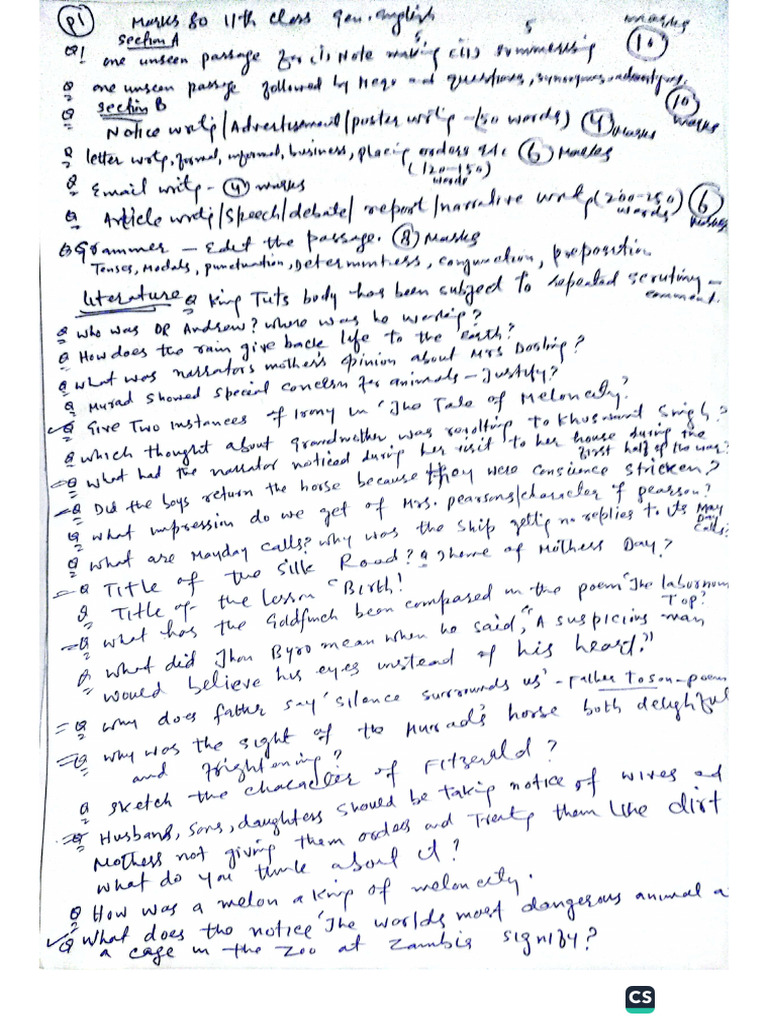 P1 Marks 80 11th class Gen. english
Section A 5 5 marks
Q1 one unseen passage for (i) Note making (ii) summerising (10)
Q one unseen passage followed by and questions, synonyms
(10) marks
Section B
Q Notice writing/Advertisement/poster writing - (50 words) (4) Marks
Q letter writing, formal, informal, business, placing orders etc (6) Marks
(120-150) words
Q Email writing - (4) marks
Q Article writing/Speech/debate/report/narrative writing (200-250) words (6) Marks
Q Grammer - Edit the passage. (8) Marks
Tenses, Modals, punctuation, Determiners, conjunction, preposition
Literature Q King Tuts body has been subject to repeated scrutiny - comment.
Q who was DR Andrew? where was he working?
Q How does the rain give back life to the earth?
Q what was narrators mother's opinion about Mrs Dorling?
Q Murad showed special concern for animals - Justify?
Q Give Two instances of Irony in 'The Tale of Meloncity.'
Q which thought about Grandmother was revolting to Khushwant Singh?
Q what had the narrator noticed during her visit to her house during the first half of the war?
Q Did the boys return the horse because they were conscience stricken?
Q what impression do we get of Mrs. pearsons/character of pearson?
Q what are Mayday calls? why was the ship getting no replies to its May Day calls?
Q Title of the Silk Road? Q Theme of Mothers Day?
Q Title of the lesson "Birth!
Q what has the Goldfinch been compared in the poem 'The laburnum Top?
Q what did Jhon Byro mean when he said, "A suspicious man
would believe his eyes instead of his heart."
Q why does father say 'silence surrounds us' - father to son - poem
Q why was the sight of the Murrad's horse both delightful
and frightening?
Q sketch the character of Fitzerald?
Q Husband, sons, daughters should be taking notice of wives and
Mothers not giving them orders and Treating them like dirt
what do you think about it?
Q How was a melon a king of meloncity.
Q what does the notice 'The worlds most dangerous animal a
a cage in the zoo at Zambia signify?
CS